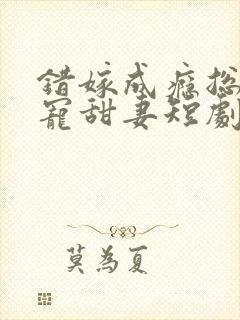 錯嫁成癮總
寵甜妻短劇
莫為夏